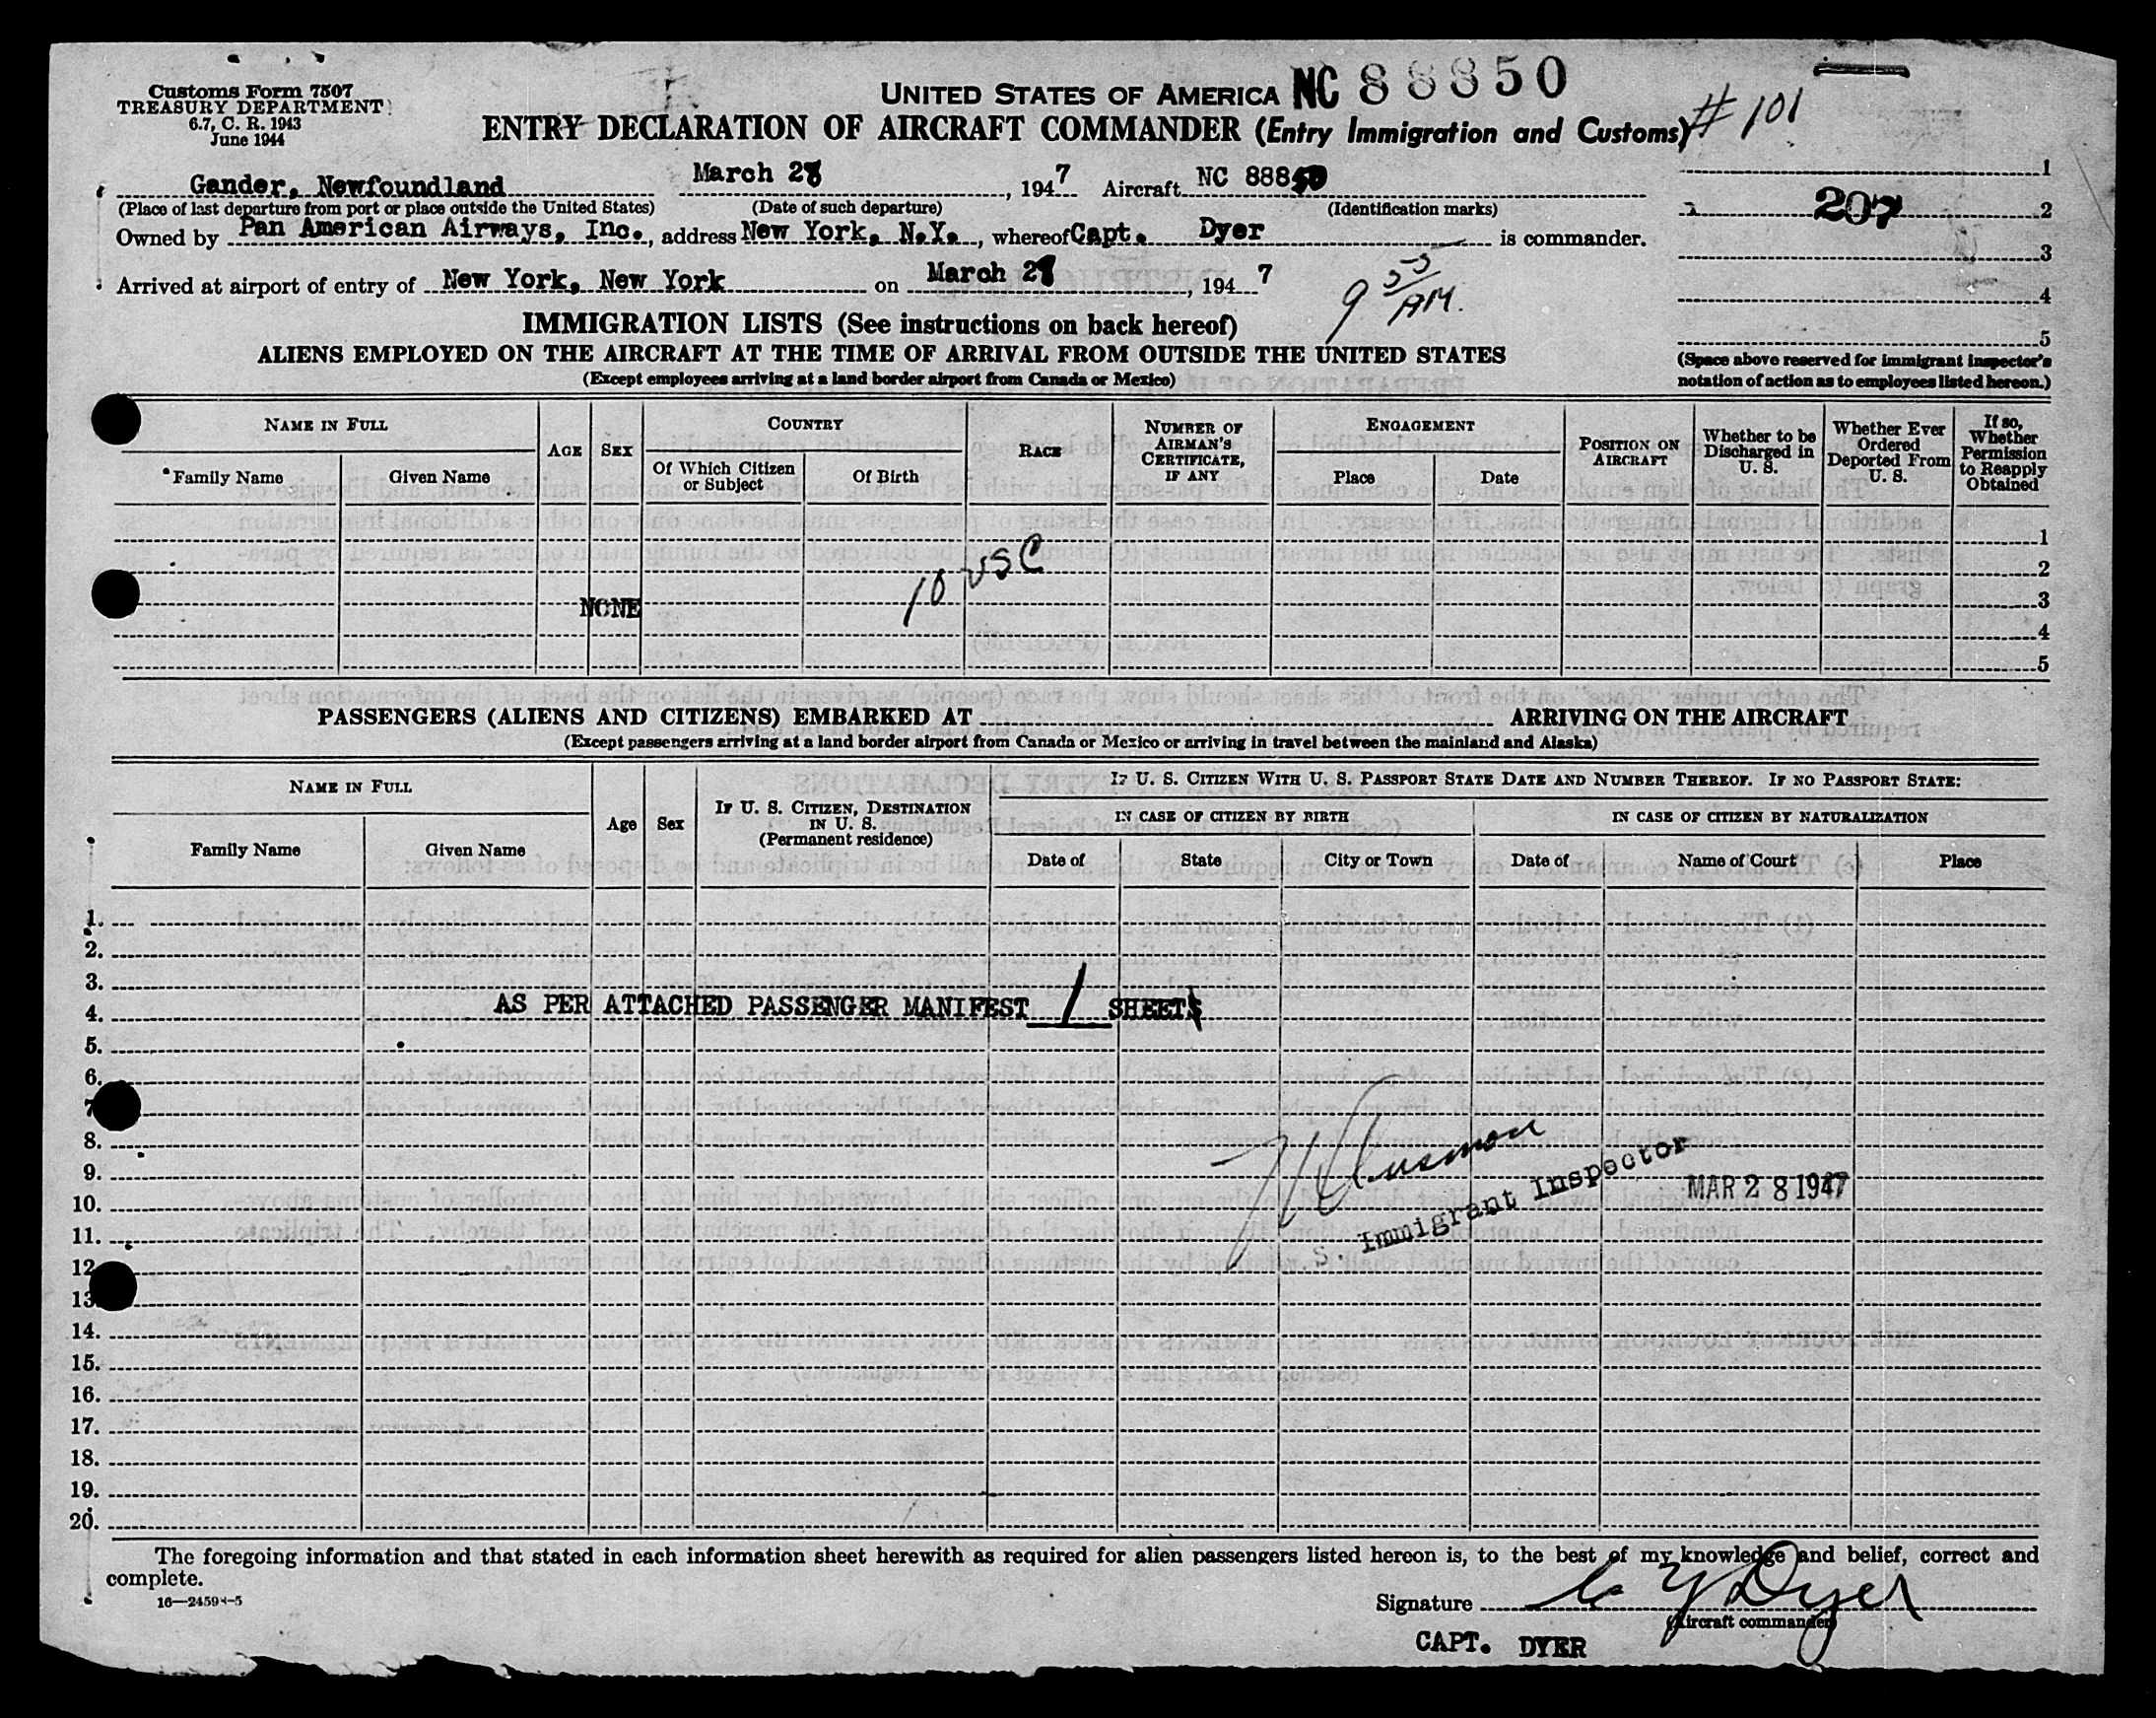 Customs Form 7507
TREASURY DEPARTMENT
6.7, C. R. 1943
June 1944
UNITED STATES OF AMERICA NC 88850
ENTRY DECLARATION OF AIRCRAFT COMMANDER (Entry Immigration and Customs) # 101
Gander, Newfoundland March 28, 1947 Aircraft NC 88850
(Place of last departure from port or place outside the United States) (Date of such departure) (Identification marks)
Owned by Pan American Airways, Inc., address New York, N.Y., whereof Capt. Dyer is commander.
Arrived at airport of entry of New York, New York on March 28, 1947
9 55 AM.
1
207 2
3
4
5
(Space above reserved for immigrant inspector's notation of action as to employees listed hereon.)
IMMIGRATION LISTS (See instructions on back hereof)
ALIENS EMPLOYED ON THE AIRCRAFT AT THE TIME OF ARRIVAL FROM OUTSIDE THE UNITED STATES
(Except employees arriving at a land border airport from Canada or Mexico)
NAME IN FULL
Family Name Given Name
AGE SEX
COUNTRY
Of Which Citizen or Subject Of Birth
RACE
NUMBER OF AIRMAN'S CERTIFICATE, IF ANY
ENGAGEMENT
Place Date
POSITION ON AIRCRAFT
Whether to be Discharged in U. S.
Whether Ever Ordered Deported From U. S.
If so, Whether Permission to Reapply Obtained
1
10 USC
2
NONE 3
4
5
PASSENGERS (ALIENS AND CITIZENS) EMBARKED AT ARRIVING ON THE AIRCRAFT
(Except passengers arriving at a land border airport from Canada or Mexico or arriving in travel between the mainland and Alaska)
NAME IN FULL
Family Name Given Name
Age Sex
IF U. S. CITIZEN, DESTINATION IN U. S. (Permanent residence)
IF U. S. CITIZEN WITH U. S. PASSPORT STATE DATE AND NUMBER THEREOF. IF NO PASSPORT STATE:
IN CASE OF CITIZEN BY BIRTH IN CASE OF CITIZEN BY NATURALIZATION
Date of State City or Town Date of Name of Court Place
1.
2.
3.
AS PER ATTACHED PASSENGER MANIFEST 1 SHEET
4.
5.
6.
7
8.
9.
S. Immigrant Inspector
MAR 28 1947
10.
11.
12
13
14.
15.
16.
17.
18.
19.
20.
The foregoing information and that stated in each information sheet herewith as required for alien passengers listed hereon is, to the best of my knowledge and belief, correct and
complete.
16—24598-5
Signature C Y Dyer
(Aircraft commander)
CAPT. DYER